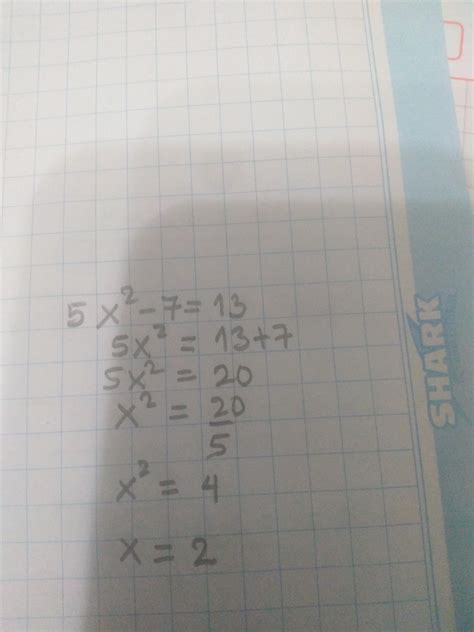 5x² - 7 = 13
5x² = 13 + 7
5x² = 20
x² = 20/5
x² = 4
x = 2
SHARK